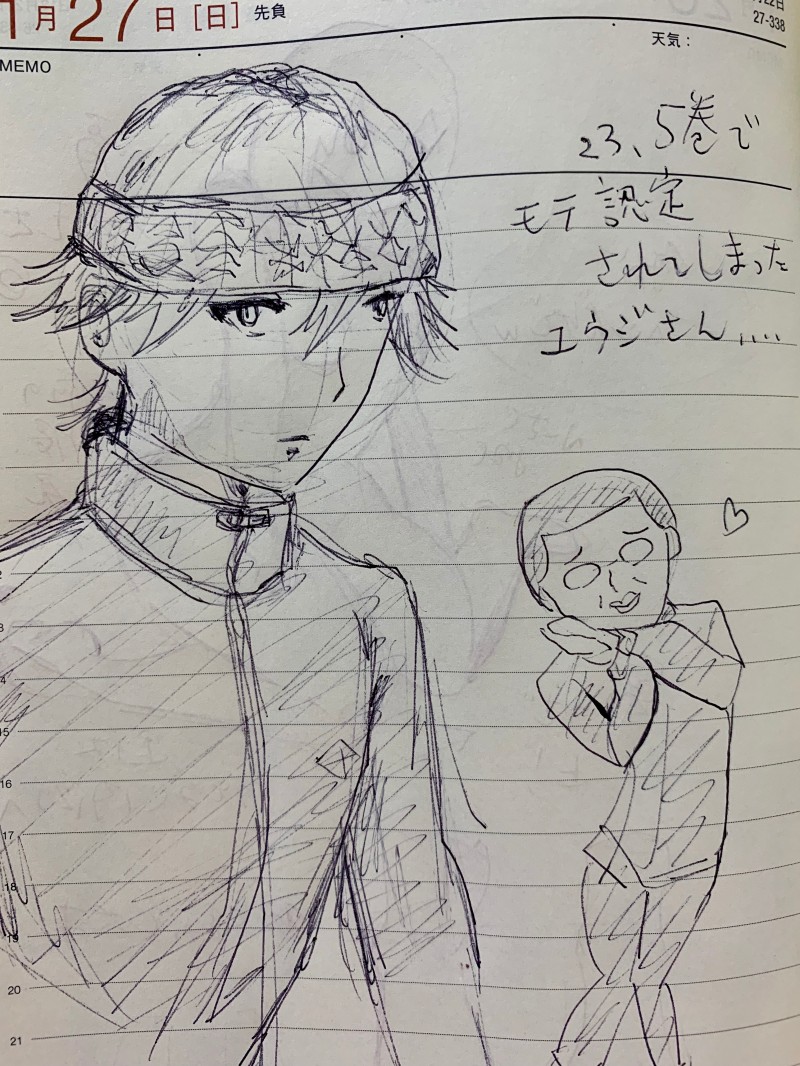 1月27日[日] 先負
月22日
27-338
天気：
MEMO
23、5巻で
モテ認定
されてしまった
ユウジさん....
13
14
15
16
17
18
19
20
21